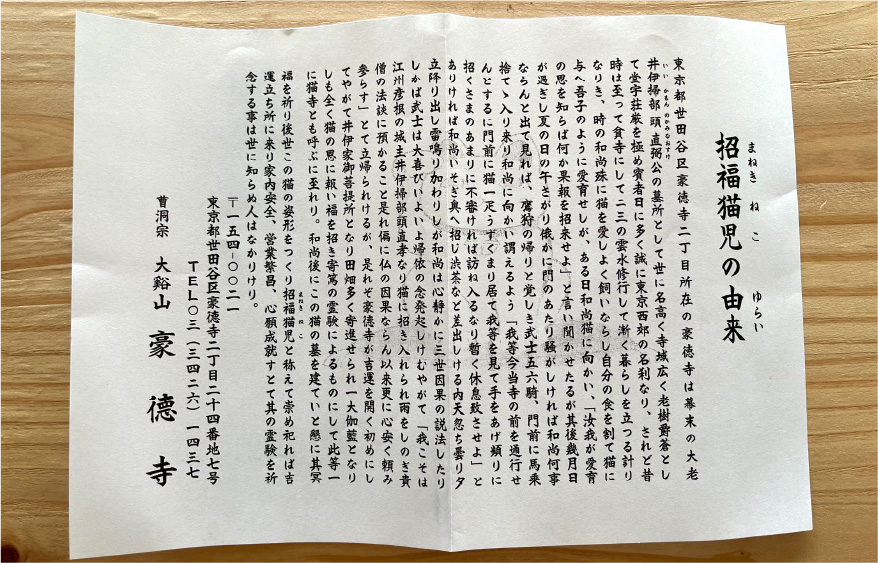 招福猫児の由来
まねき ね こ ゆらい
東京都世田谷区豪徳寺二丁目所在の豪徳寺は幕末の大老
井伊掃部頭直弼公の墓所として世に名高く寺域広く老樹爵蒼とし
いい かもん のかみなおすけ
て堂宇荘厳を極め賓者日に多く誠に東京西郊の名刹なり、されど昔
時は至って貧寺にして二三の雲水修行して漸く暮らしを立つる計り
なりき、時の和尚殊に猫を愛しよく飼いならし自分の食を割て猫に
与へ吾子のように愛育せしが、ある日和尚猫に向かい、「汝我が愛育
の恩を知らば何か果報を招来せよ」と言い聞かせたるが其後幾月日
が過ぎし夏の日の午さがり俄かに門のあたり騒がしければ和尚何事
ならんと出て見れば、鷹狩の帰りと覚しき武士五六騎、門前に馬乗
捨てゝ入り来り和尚に向かい謂えるよう「我等今当寺の前を通行せ
んとするに門前に猫一疋うずくまり居て我等を見て手をあげ頻りに
招くさまのあまりに不審ければ訪ね入るなり暫く休息致させよ」と
ありければ和尚いそぎ奥へ招じ渋茶など差出しける内天忽ち曇り夕
立降り出し雷鳴り加わりしが和尚は心静かに三世因果の説法したり
しかば武士は大喜びいよいよ帰依の念発起しけむやがて「我こそは
江州彦根の城主井伊掃部頭直孝なり猫に招き入れられ雨をしのぎ貴
僧の法談に預かること是れ偏に仏の因果ならん以来更に心安く頼み
参らす」とて立帰られけるが、是れぞ豪徳寺が吉運を開く初めにし
てやがて井伊家御菩提所となり田畑多く寄進せられ一大伽藍となり
しも全く猫の恩に報い福を招き寄篤の霊験によるものにして此寺一
に猫寺とも呼ぶに至れり。和尚後にこの猫の墓を建ていと懇に其冥
福を祈り後世この猫の姿形をつくり招福猫児と称えて崇め祀れば吉
まねき ね こ
運立ち所に来り家内安全、営業繁昌、心願成就すとて其の霊験を祈
念する事は世に知らぬ人はなかりけり。
〒一五四-〇〇二一
東京都世田谷区豪徳寺二丁目二十四番地七号
TEL〇三(三四二六)一四三七
曹洞宗 大谿山 豪徳寺